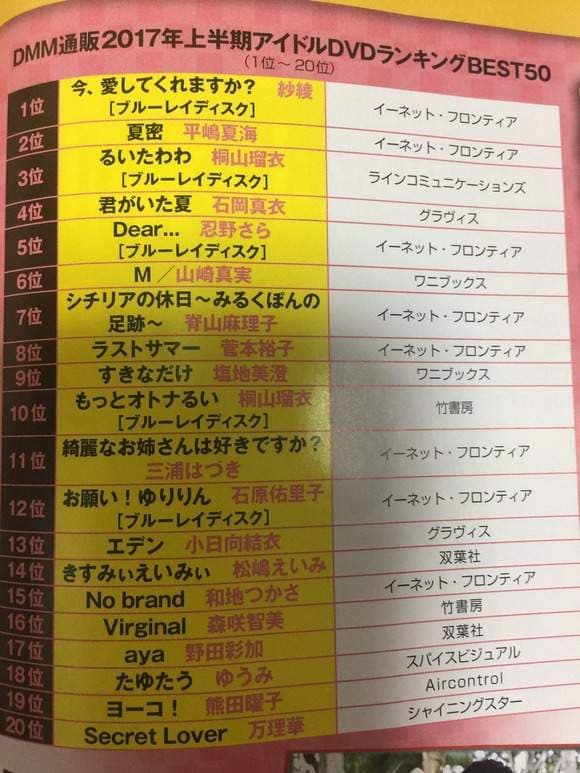 DMM通販2017年上半期アイドルDVDランキングBEST50
(1位〜20位)
1位 今、愛してくれますか? 紗綾 イーネット・フロンティア
[ブルーレイディスク]
2位 夏密 平嶋夏海 イーネット・フロンティア
3位 るいたわわ 桐山瑠衣 ラインコミュニケーションズ
[ブルーレイディスク]
4位 君がいた夏 石岡真衣 グラヴィス
5位 Dear... 忍野さら イーネット・フロンティア
[ブルーレイディスク]
6位 M/山崎真実 ワニブックス
7位 シチリアの休日〜みるくぽんの イーネット・フロンティア
足跡〜 脊山麻理子
8位 ラストサマー 菅本裕子 イーネット・フロンティア
9位 すきなだけ 塩地美澄 ワニブックス
10位 もっとオトナるい 桐山瑠衣 竹書房
[ブルーレイディスク]
11位 綺麗なお姉さんは好きですか? イーネット・フロンティア
三浦はづき
12位 お願い!ゆりりん 石原佑里子 イーネット・フロンティア
[ブルーレイディスク]
13位 エデン 小日向結衣 グラヴィス
14位 きすみぃえいみぃ 松嶋えいみ 双葉社
15位 No brand 和地つかさ イーネット・フロンティア
16位 Virginal 森咲智美 竹書房
17位 aya 野田彩加 双葉社
18位 たゆたう ゆうみ スパイスビジュアル
19位 ヨーコ! 熊田曜子 Aircontrol
20位 Secret Lover 万理華 シャイニングスター